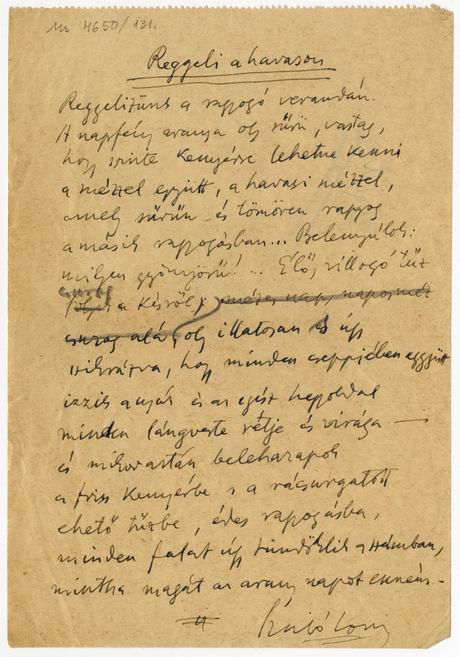 Ms 4650/131.
Reggeli a havason
Reggelizünk a ragyogó verandán.
A napfény aranya oly sűrű, vastag,
hogy szinte kenyérre lehetne kenni
a mézzel együtt, a havasi mézzel,
amely sűrűn és tömören ragyog
a másik ragyogásban... Belenyúlok:
milyen gyönyörű! .. Élő, villogó tűz
csurog a késről;
csurog alá, oly illatosan és úgy
szikrázva, hogy minden cseppjében együtt
izzik a nyár és az egész hegyoldal
minden lángveste rétje és virága —
és mikor aztán beleharapok
a friss kenyérbe s a rácsurgatott
ehető tűzbe, édes ragyogásba,
minden falat úgy tündöklik a számban,
mintha magát az arany napot enném. -
Szabó Lőrinc